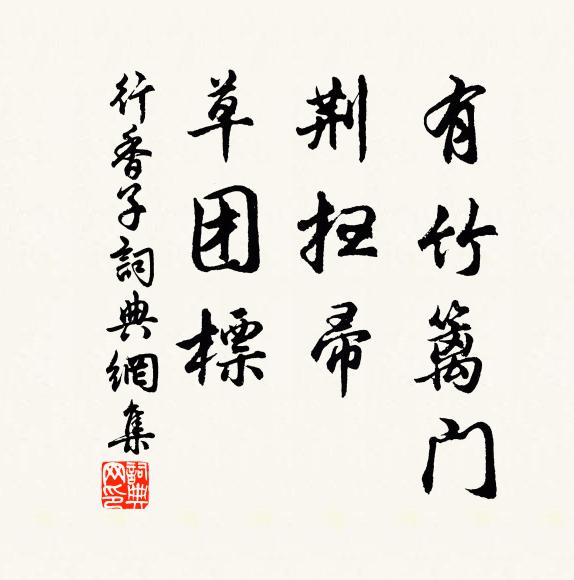 有竹籬門
荆扫帚
草团標
行香子詞典網集
詞典网印